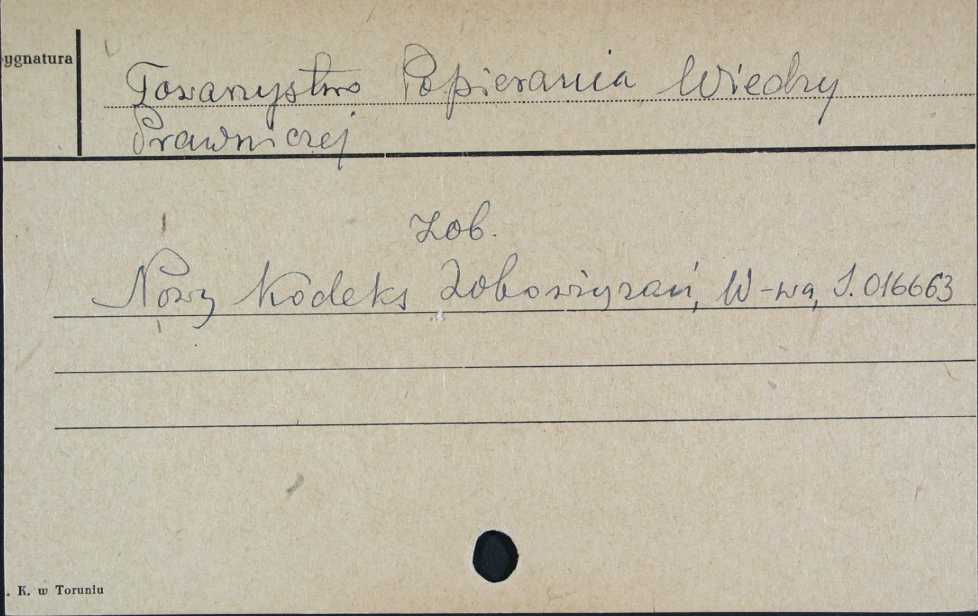 ygnatura
Towarzystwo Popierania Wiedzy
Prawniczej
Zob.
Nowy Kodeks Zobowiązań, W-wa, S. 016663
. K. w Toruniu